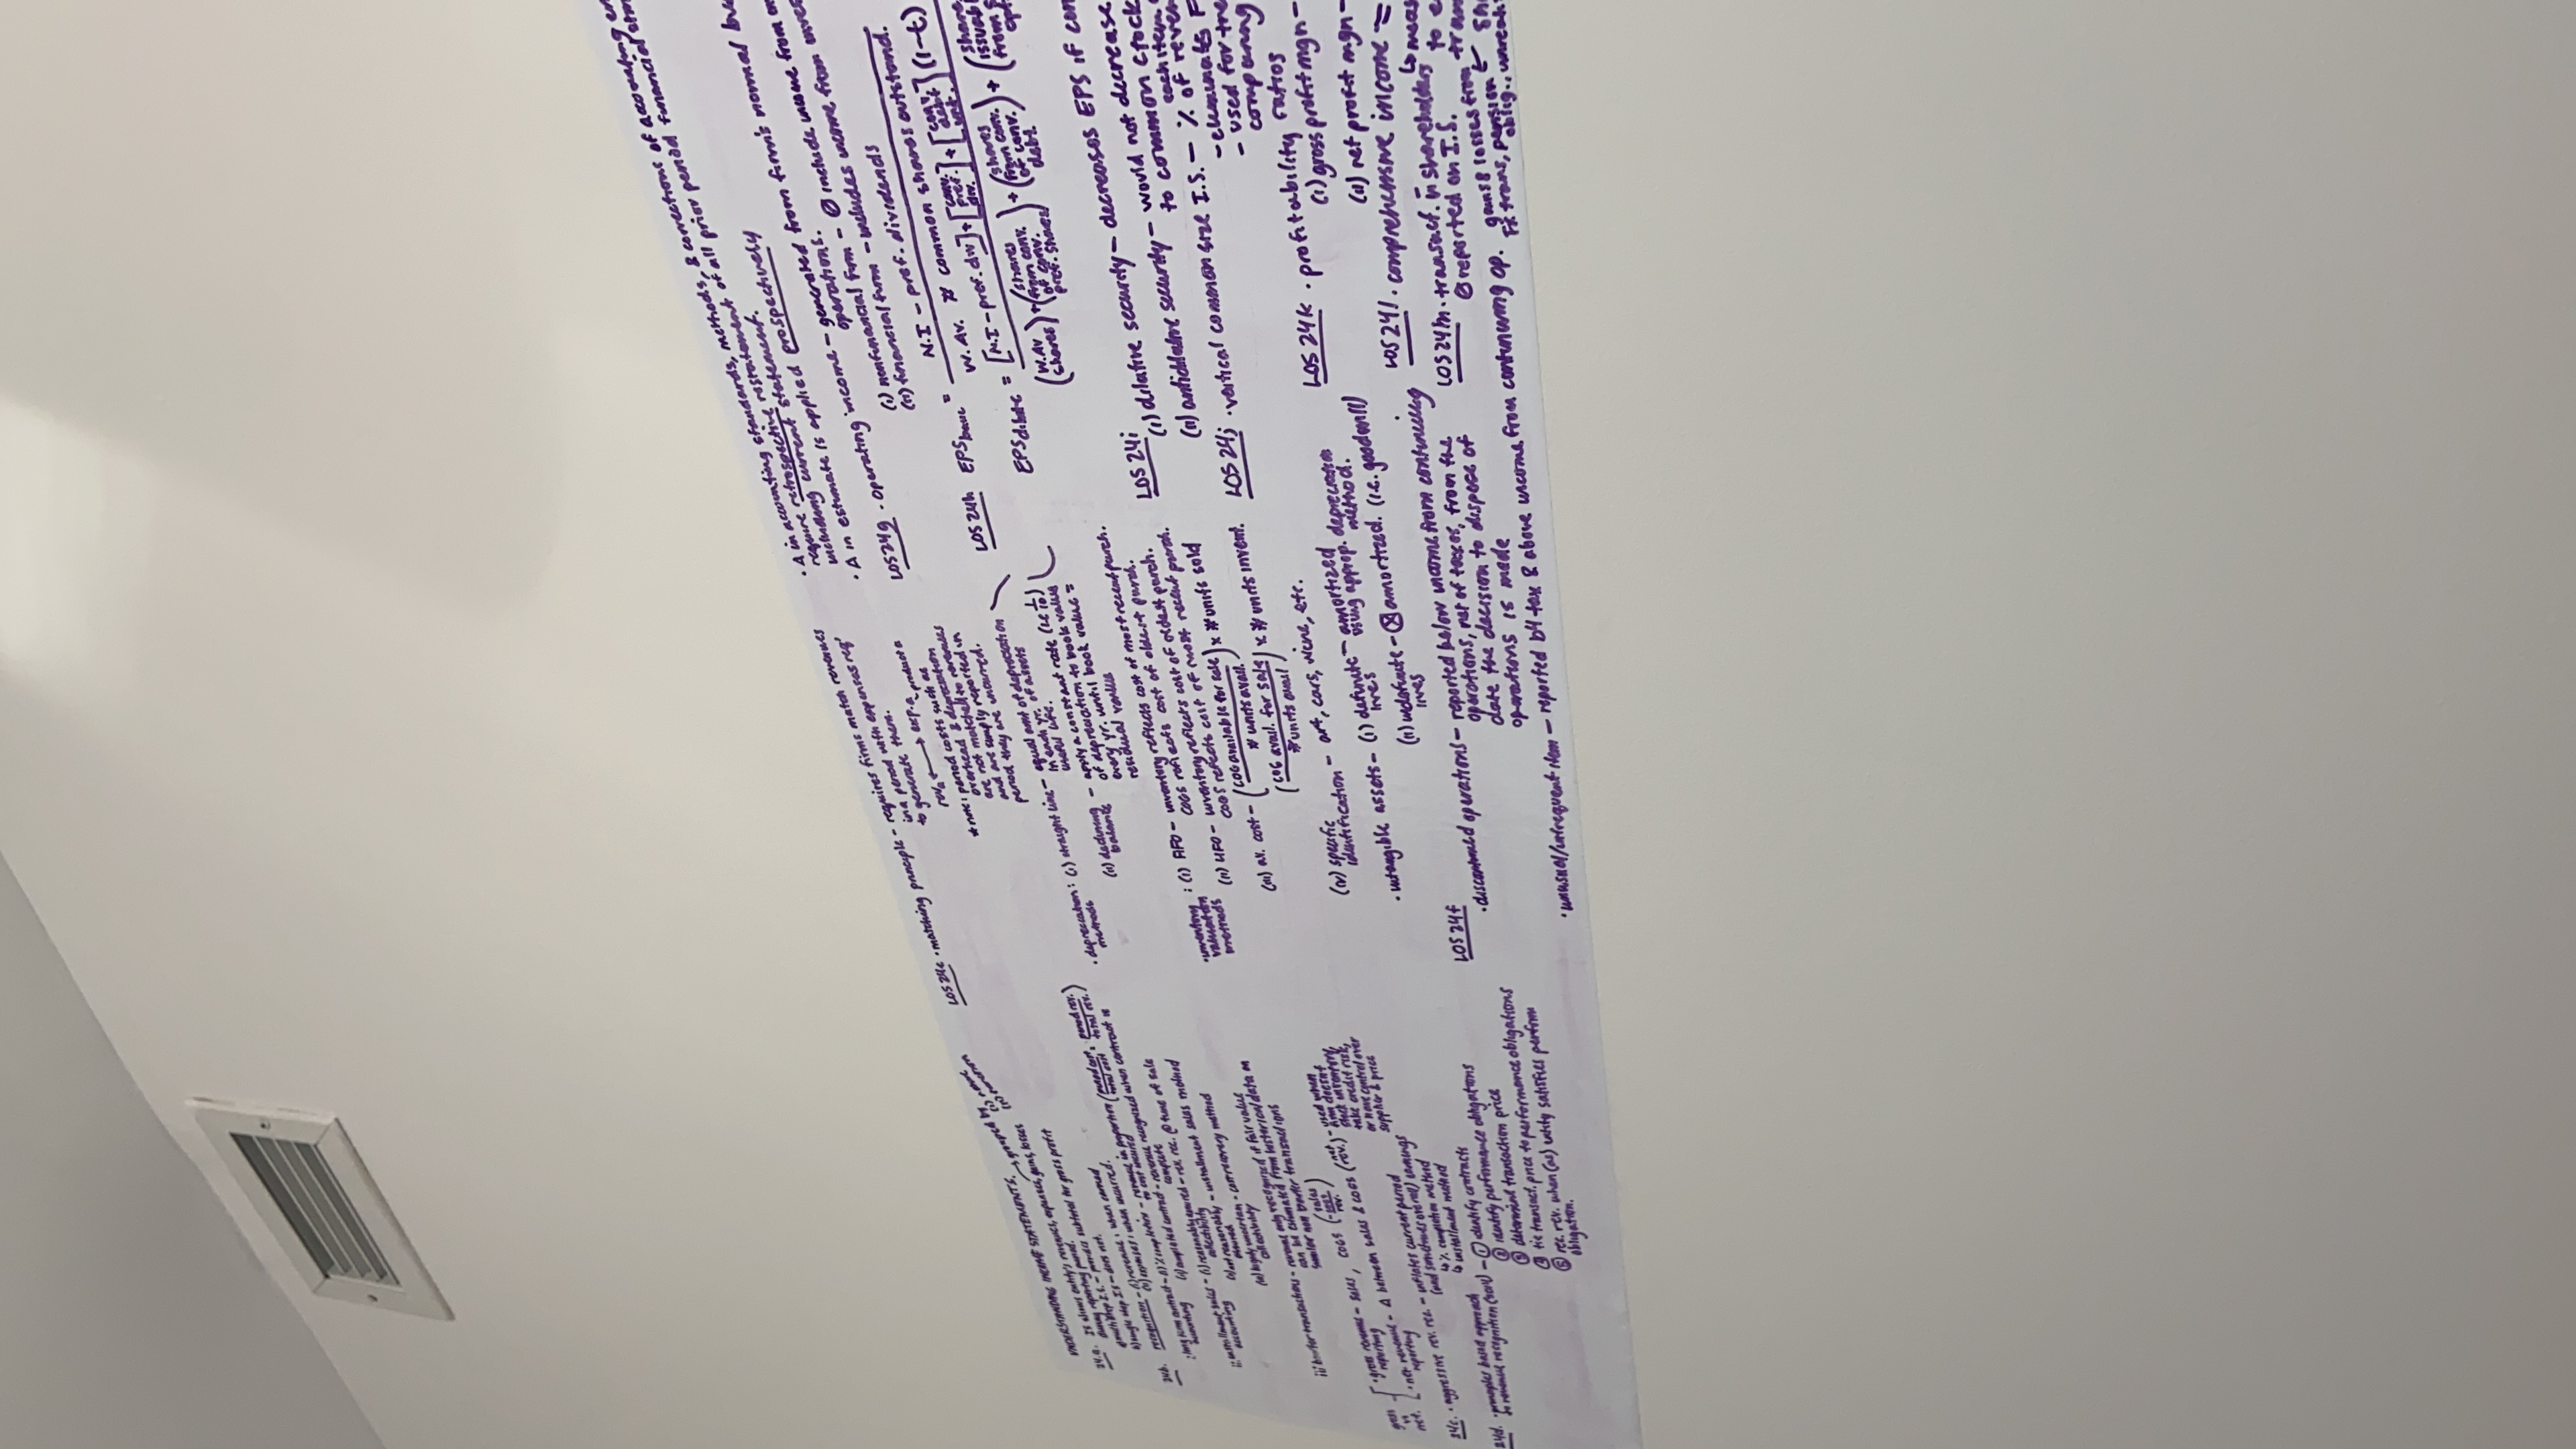 UNDERSTANDING INCOME STATEMENTS.
24a. IS shows entity's revenues, expenses, gains, losses → grouped by (i) nature
(ii) function
during reporting period.
a) multi step I.S. – provides subtotal for gross profit
b) single step IS – does not.
24b. recognition – (i) revenue : when earned
(ii) expenses : when incurred.
i: long term contract – (i) % completion – revenue in proportion (period cost / total cost = period rev. / total rev.)
accounting to cost incurred
(ii) completed contract – revenue recognized when contract is
complete
ii: installment sales – (i) reasonably assured – rev. rec. @ time of sale
accounting collectibility
(ii) not reasonably – installment sales method
assured
(iii) highly uncertain – cost recovery method
collectibility
iii: barter transactions – revenue only recognized if fair value
can be estimated from historical data on
similar non barter transactions
gross vs net.
• gross revenue – sales, COGS (sales - COGS / rev.)
reporting
• net revenue – Δ between sales & COGS (net rev.) – used when
reporting firm doesn't
stock inventory,
take credit risk,
or have control over
supplier & price
24c. • aggressive rev. rec. – inflates current period
(and sometimes overall) earnings
↳ % completion method
↳ installment method
24d. • principles based approach – ① identify contracts
to revenue recognition
② identify performance obligations
③ determine transaction price
④ tie transact. price to performance obligations
⑤ rec. rev. when (as) entity satisfies perform
obligation.
LOS 24e • matching principle – requires firms match revenues
in a period with expenses req'
to generate them.
rev.a ↔ exp.a – product a
* note: period costs such as
overhead & depreciation
are not matched to revenues
and are simply reported in
period they are incurred.
• depreciation : (i) straight line – equal amt of depreciation
methods in each yr. of assets
useful life.
(ii) declining – apply a constant rate (i.e 1/10)
balance of depreciation to book value
every yr. until book value =
residual value
• inventory : (i) FIFO – inventory reflects cost of most recent purch.
valuation COGS reflects cost of oldest purch.
methods (ii) LIFO – inventory reflects cost of oldest purch.
COGS reflects cost of most recent purch.
(iii) av. cost – (COG available for sale / # units avail.) × # units sold
(COG avail. for sale / # units avail) × # units invent.
(iv) specific
identification – art, cars, wine, etc.
• intangible assets – (i) definite – amortized
lives using approp. depreciation
method.
(ii) indefinite – ⊗ amortized. (i.e. goodwill)
lives
LOS 24f
• discontinued operations – reported below income from continuing
operations, net of taxes, from the
date the decision to dispose of
operations is made
• unusual/infrequent item – reported b4 tax & above income from continuing op.
• Δ in accounting standards, methods, & corrections of accounting
require retrospective restatement of all prior period financial
including current statement.
• Δ in estimate is applied prospectively
LOS 24g • operating income – generated from firm's normal
operations.
(i) nonfinancial firm – Ø include income from
(ii) financial firm – includes income from
LOS 24h EPS basic = N.I – pref. dividends
W. Av. # common shares outstand.
EPS dilute = [N.I – pref. div] + [conv. pref. div.] + [conv. debt int.] (1-t)
(W.AV shares) + (shares from conv. of conv. pref. shares) + (shares from conv. of conv. debt) +
LOS 24i
(i) dilutive security – decreases EPS if
(ii) antidilutive security – would not decrease
to common stock
LOS 24j • vertical common size I.S. – % of
each item
– eliminates
– used for
comparing
LOS 24k • profitability ratios
(i) gross profit mgn –
(ii) net profit mgn –
LOS 24l • comprehensive income =
LOS 24m • transact. in shareholders
Ø reported on I.S.
gains & losses from
Fx trans, pension
oblig.,